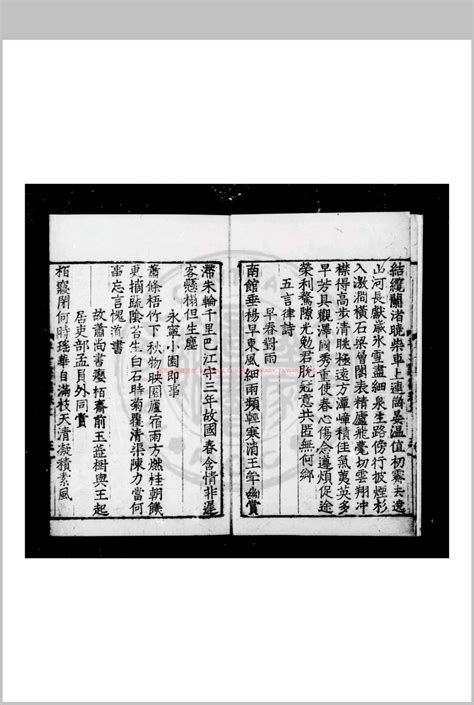 結纓蘭渚曉柴車上連岡晏溫值初霽去遶
山河長獻歲冰雪盡細泉生路傍行披煙杉
入激澗橫石梁層閣表精廬飛甍切雲翔沖
襟得高步清眺極遠方潭嶂積佳氣荑英多
早芳具觀澤國秀重使春心傷念遵煩促途
榮利騖隙光勉君脫冠意共匿無何鄉
五言律詩
早春對雨
南館垂楊早東風細雨頻輕寒消玉斝幽賞
滯朱輪千里巴江守三年故國春含情非遲
客懸榻但生塵
永寧小園即事
蕭條梧竹下秋物映園廬宿雨方燃桂朝饑
更摘蔬陰苔生白石時菊覆清渠陳力當何
事忘言愧道書
故蕭尚書癭栢齋前玉蘂樹與王起
居吏部孟員外同賞
栢寢閉何時瑤華自滿枝天清凝積素風